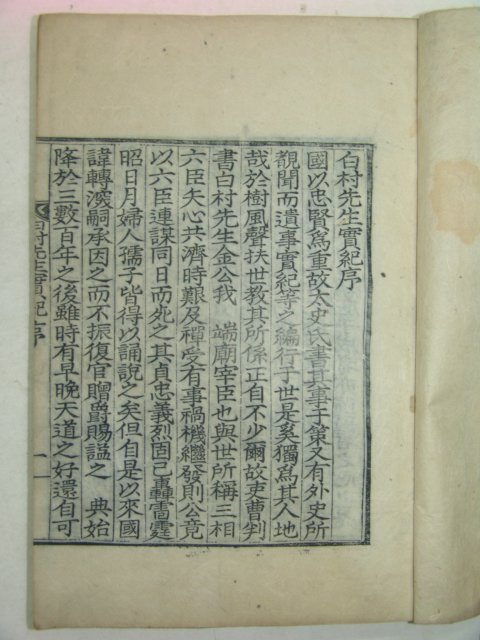 白村先生實紀序
國以忠賢爲重故太史氏書其事于策又有外史所
覩聞而遺事實紀等之編行于世是奚獨爲其人地
哉於樹風聲扶世教其所係正自不少爾故吏曹判
書白村先生金公我 端廟宰臣也與世所稱三相
六臣矢心共濟時艱及禪受有事禍機繼發則公竟
以六臣連謀同日而死之其貞忠義烈固已轟雷霆
昭日月婦人孺子皆得以誦說之矣但自是以來國
諱轉深嗣承因之而不振復官贈爵賜謚之 典始
降於三數百年之後雖時有早晩天道之好還自可
白村先生實紀 序 一